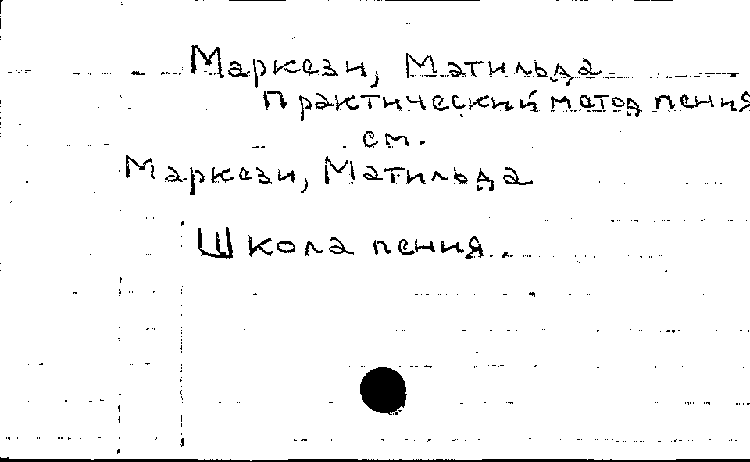 Маркези, Матильда
Практический метод пения
см.
Маркези, Матильда
Школа пения.